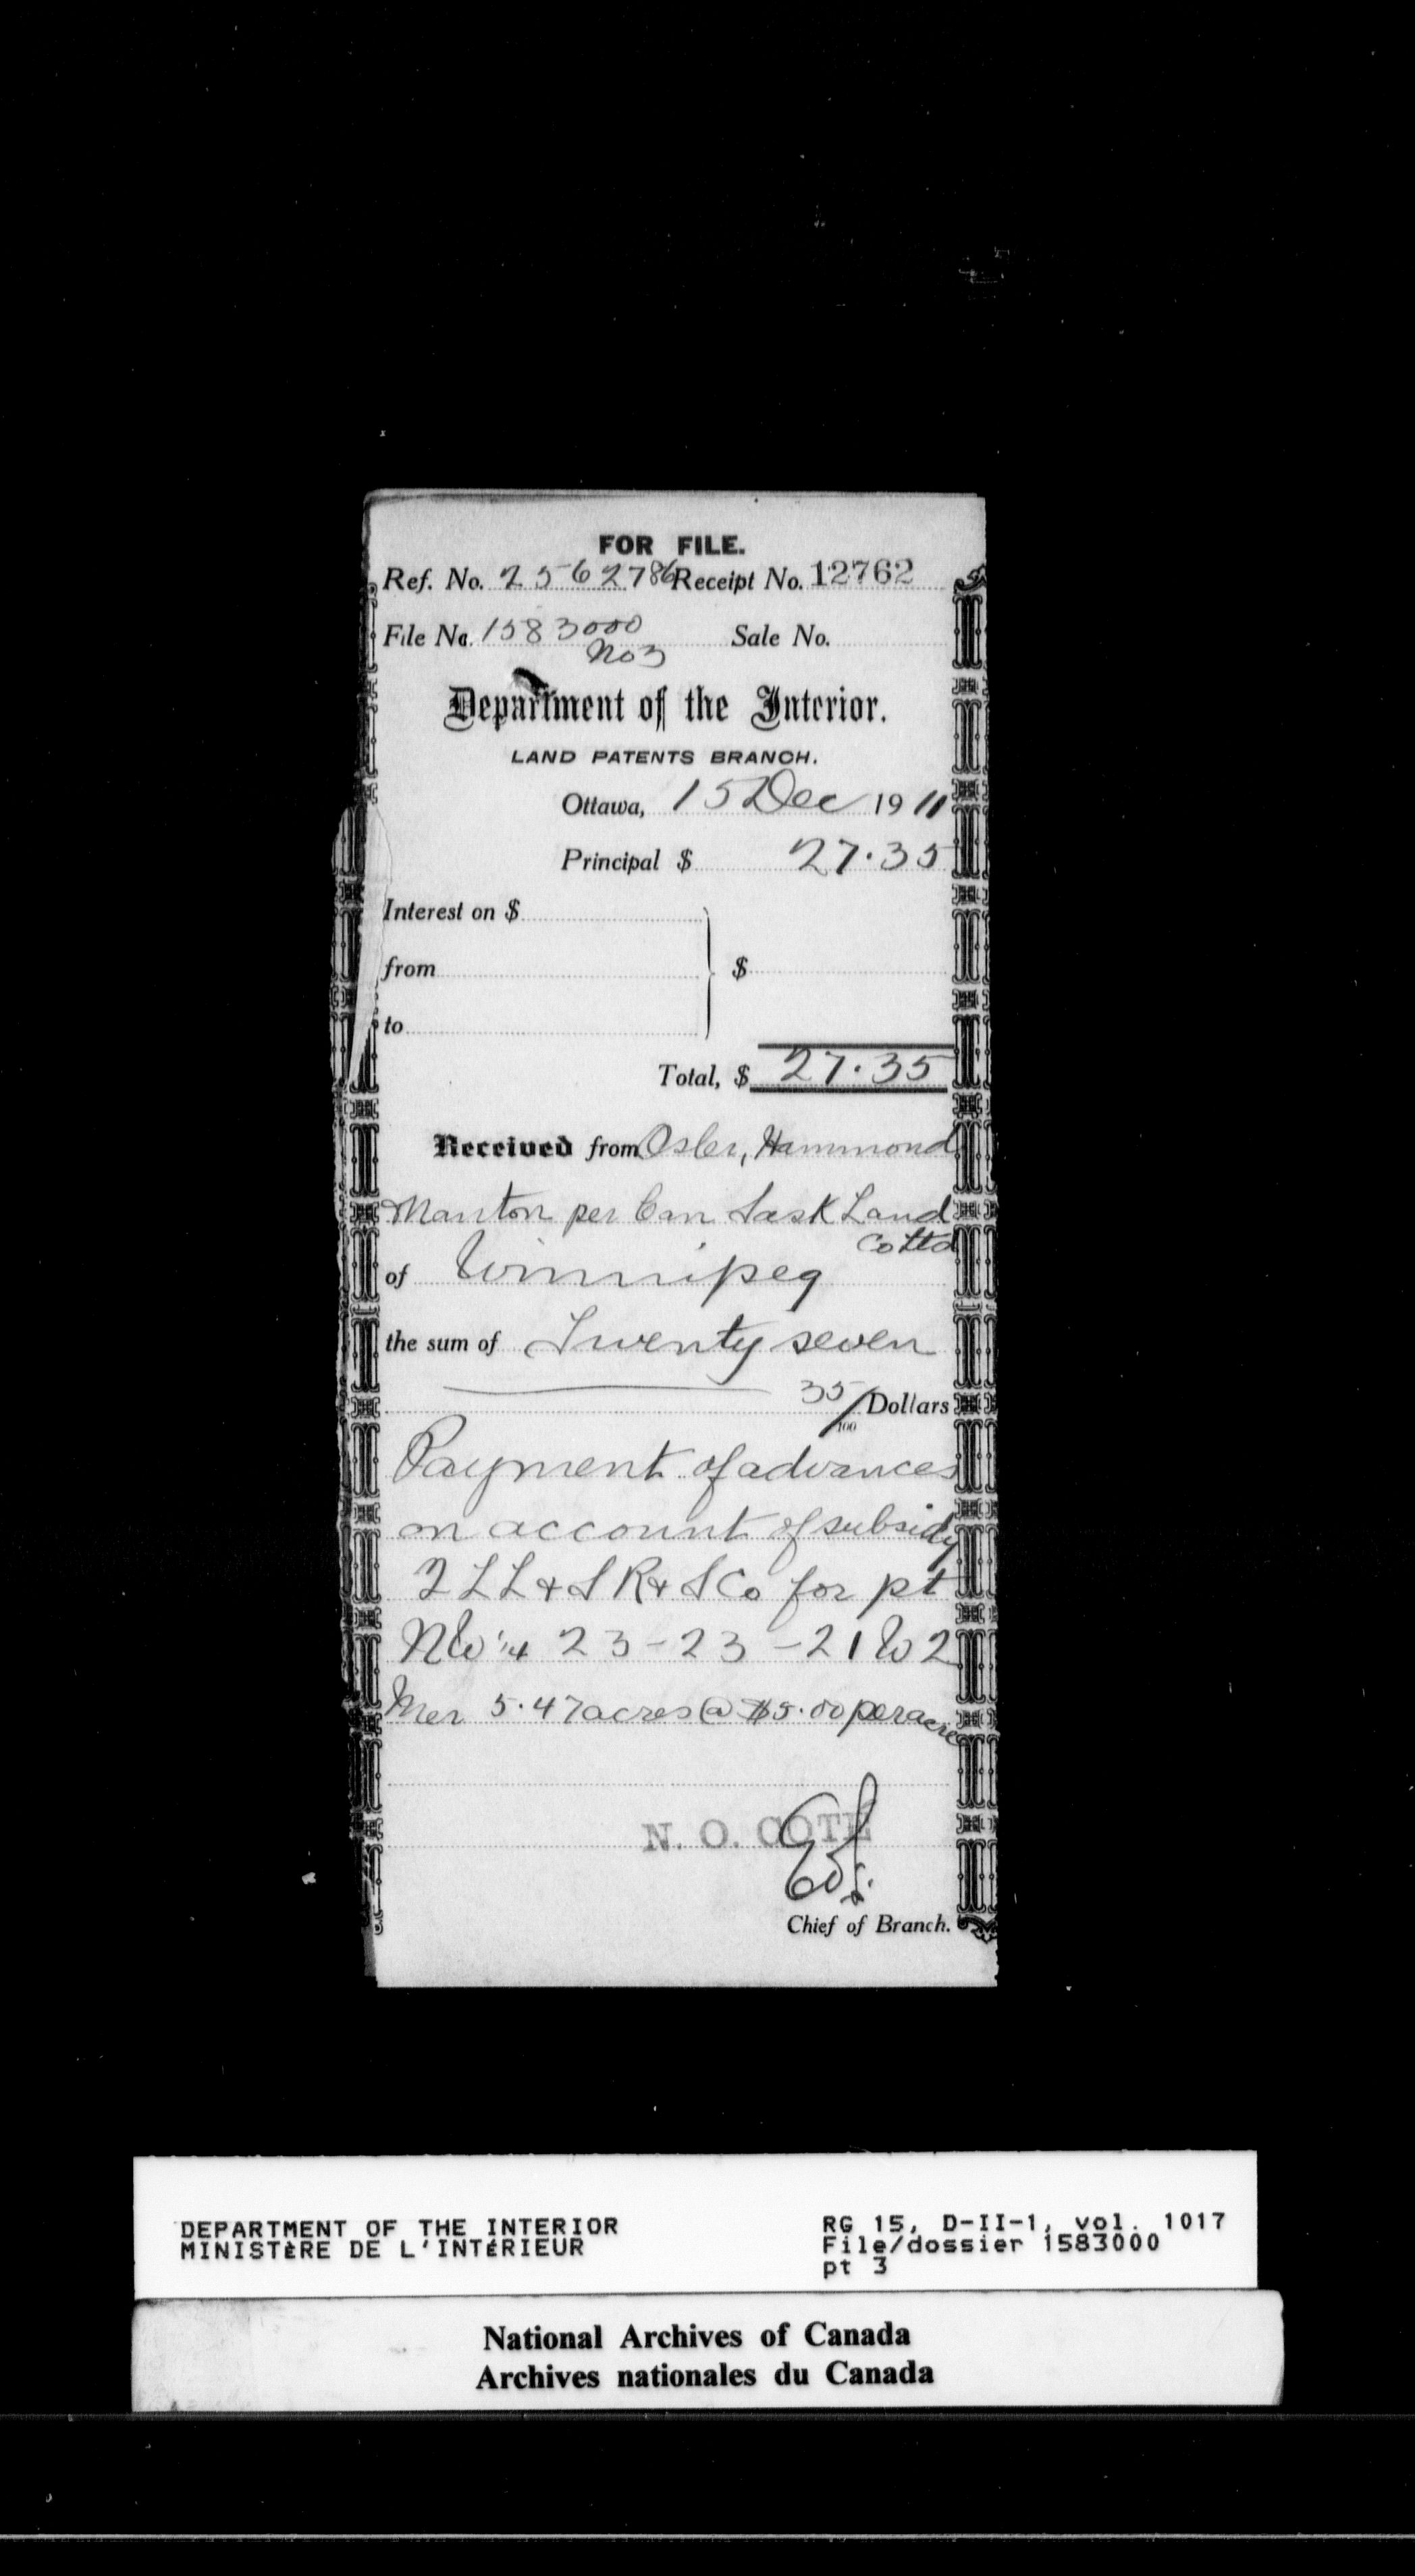 FOR FILE.
Ref. No. 2562786 Receipt No. 12762
File No. 1583000 Sale No.
No 3
Department of the Interior.
LAND PATENTS BRANCH.
Ottawa, 15 Dec 1911
Principal $ 27.35
Interest on $
from $
to
Total, $ 27.35
Received from Osler, Hammond
Manton per Can Sask Land
Co Ltd
of Winnipeg
the sum of Twenty seven
35/100 Dollars
Payment of advances
on account of subsidy
2 LL & S R & S Co for pt
NW 1/4 23-23-21 W 2
Mer 5.47 acres @ $5.00 per acre
N. O. COTE
Chief of Branch.
DEPARTMENT OF THE INTERIOR
MINISTÈRE DE L'INTÉRIEUR
RG 15, D-II-1, vol. 1017
File/dossier 1583000
pt 3
National Archives of Canada
Archives nationales du Canada